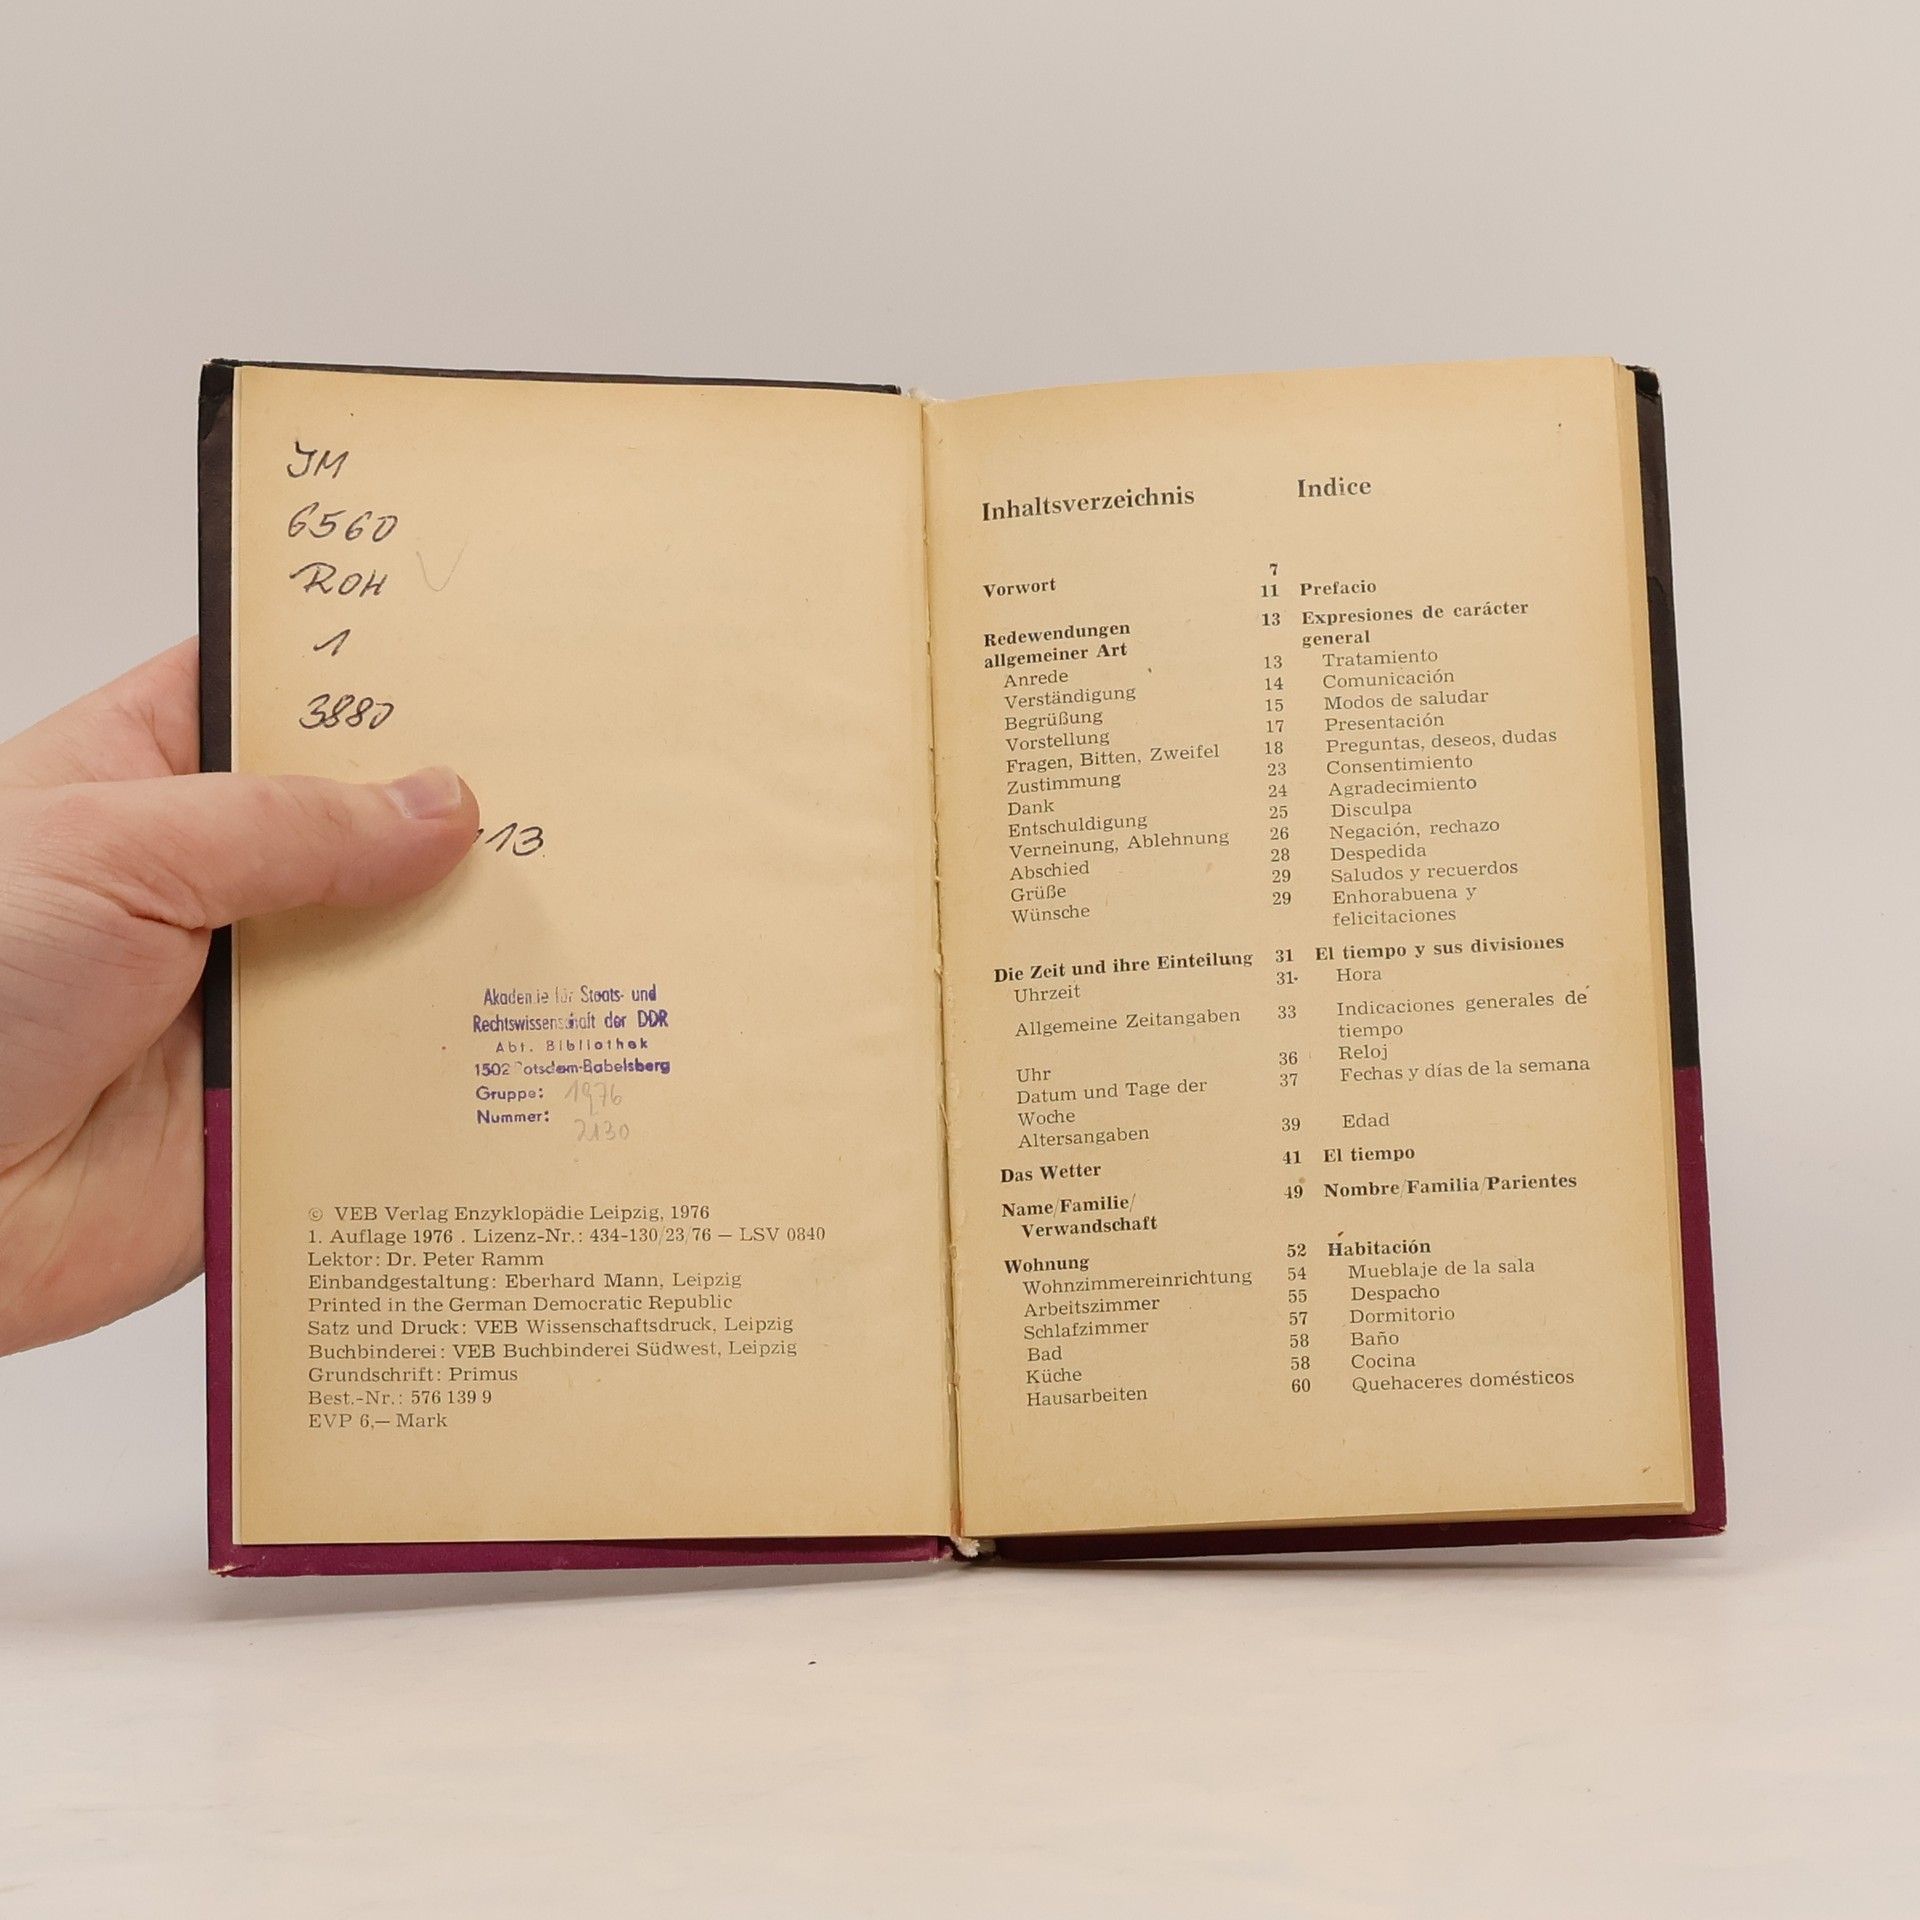 JM
6560
ROH
1
3880
113.
Akademie für Staats- und
Rechtswissenschaft der DDR
Abt. Bibliothek
1502 Potsdam-Babelsberg
Gruppe: 1976
Nummer: 2130
© VEB Verlag Enzyklopädie Leipzig, 1976
1. Auflage 1976 . Lizenz-Nr.: 434-130/23/76 — LSV 0840
Lektor: Dr. Peter Ramm
Einbandgestaltung: Eberhard Mann, Leipzig
Printed in the German Democratic Republic
Satz und Druck: VEB Wissenschaftsdruck, Leipzig
Buchbinderei: VEB Buchbinderei Südwest, Leipzig
Grundschrift: Primus
Best.-Nr.: 576 139 9
EVP 6,— Mark
Inhaltsverzeichnis Indice
7
Vorwort 11 Prefacio
Redewendungen 13 Expresiones de carácter
allgemeiner Art general
Anrede 13 Tratamiento
Verständigung 14 Comunicación
Begrüßung 15 Modos de saludar
Vorstellung 17 Presentación
Fragen, Bitten, Zweifel 18 Preguntas, deseos, dudas
Zustimmung 23 Consentimiento
Dank 24 Agradecimiento
Entschuldigung 25 Disculpa
Verneinung, Ablehnung 26 Negación, rechazo
Abschied 28 Despedida
Grüße 29 Saludos y recuerdos
Wünsche 29 Enhorabuena y
felicitaciones
Die Zeit und ihre Einteilung 31 El tiempo y sus divisiones
Uhrzeit 31 Hora
Allgemeine Zeitangaben 33 Indicaciones generales de
tiempo
Uhr 36 Reloj
Datum und Tage der 37 Fechas y días de la semana
Woche
Altersangaben 39 Edad
Das Wetter 41 El tiempo
Name/Familie/ 49 Nombre/Familia/Parientes
Verwandschaft
Wohnung 52 Habitación
Wohnzimmereinrichtung 54 Mueblaje de la sala
Arbeitszimmer 55 Despacho
Schlafzimmer 57 Dormitorio
Bad 58 Baño
Küche 58 Cocina
Hausarbeiten 60 Quehaceres domésticos